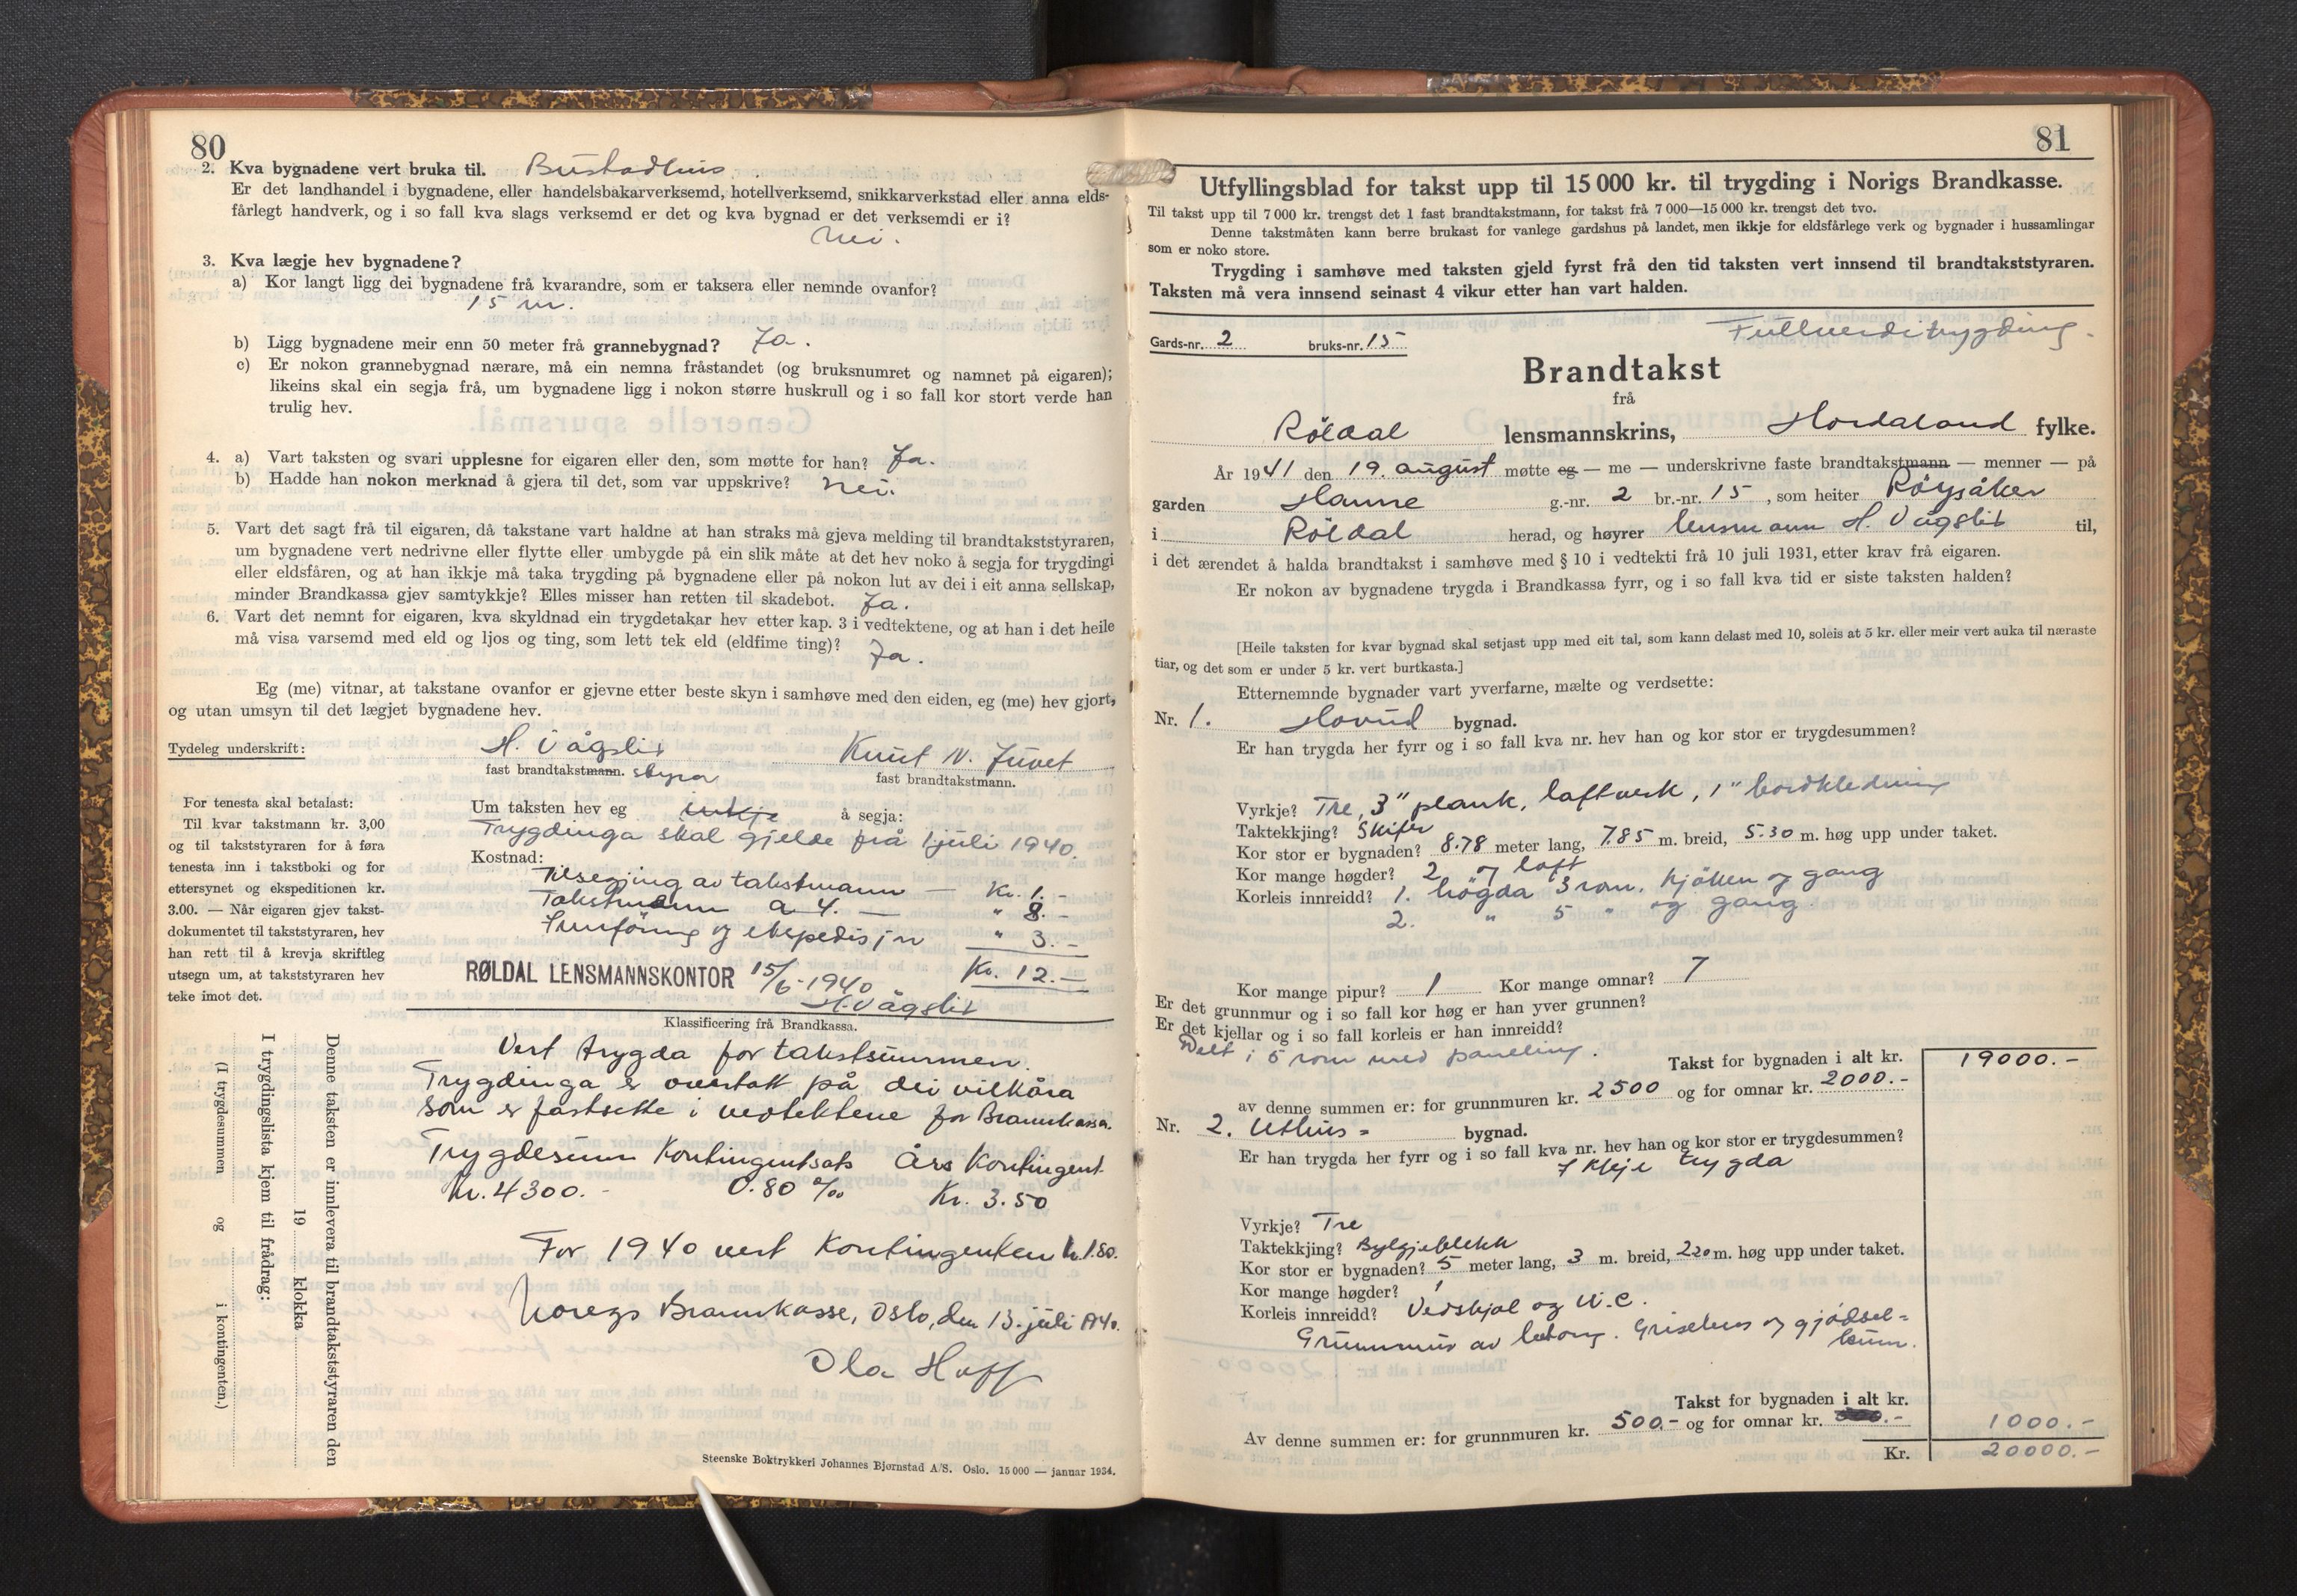 80
2. Kva bygnadene vert bruka til. Bustadhus
Er det landhandel i bygnadene, eller handelsbakarverksemd, hotellverksemd, snikkarverkstad eller anna elds-
fårlegt handverk, og i so fall kva slags verksemd er det og kva bygnad er det verksemdi er i?
Nei.
3. Kva lægje hev bygnadene?
a) Kor langt ligg dei bygnadene frå kvarandre, som er taksera eller nemnde ovanfor?
15 m.
b) Ligg bygnadene meir enn 50 meter frå grannebygnad? Ja.
c) Er nokon grannebygnad nærare, må ein nemna fråstandet (og bruksnumret og namnet på eigaren);
likeins skal ein segja frå, um bygnadene ligg i nokon større huskrull og i so fall kor stort verde han
trulig hev.
4. a) Vart taksten og svari upplesne for eigaren eller den, som møtte for han? Ja.
b) Hadde han nokon merknad å gjera til det, som var uppskrive? Nei.
5. Vart det sagt frå til eigaren, då takstane vart haldne at han straks må gjeva melding til brandtakststyraren,
um bygnadene vert nedrivne eller flytte eller umbygde på ein slik måte at det hev noko å segja for trygdingi
eller eldsfåren, og at han ikkje må taka trygding på bygnadene eller på nokon lut av dei i eit anna sellskap,
minder Brandkassa gjev samtykkje? Elles misser han retten til skadebot. Ja.
6. Vart det nemnt for eigaren, kva skyldnad ein trygdetakar hev etter kap. 3 i vedtektene, og at han i det heile
må visa varsemd med eld og ljos og ting, som lett tek eld (eldfime ting)? Ja.
Eg (me) vitnar, at takstane ovanfor er gjevne etter beste skyn i samhøve med den eiden, eg (me) hev gjort,
og utan umsyn til det lægjet bygnadene hev.
Tydeleg underskrift: H. Vågslid Knut N. Juvet
fast brandtakstmann. styra fast brandtakstmann.
For tenesta skal betalast:
Til kvar takstmann kr. 3,00
og til takststyraren for å føra
tenesta inn i takstboki og for
ettersynet og ekspeditionen kr.
3.00. — Når eigaren gjev takst-
dokumentet til takststyraren, hev
han rett til å krevja skriftleg
utsegn um, at takststyraren hev
teke imot det.
Um taksten hev eg inkje å segja:
Trygdinga skal gjelde frå 1 juli 1940.
Kostnad:
Tilsegjing av takstmann — Kr. 1.-
Takstmann a 4. — " 8.-
Innföring og ekspedisjon " 3.-
RØLDAL LENSMANNSKONTOR 15/6-1940 Kr. 12.-
H. Vågslid
Klassificering frå Brandkassa.
Vert trygda for takstsummen.
Trygdinga er overtatt på dei vilkåra
som er fastsette i vedtektene for Brannkassa.
Trygdesum Kontingentsats Års Kontingent
Kr. 4300.- 0.80 ‰ Kr. 3.50
For 1940 vert Kontingenten kr. 1.80.
Noregs Brannkasse, Oslo, den 13. juli 1940.
Ola Hoff
Denne taksten er innlevera til brandtakststyraren den
19 klokka
I trygdingslista kjem til frådrag:
(I trygdesummen og i kontingenten.)
Steenske Boktrykkeri Johannes Bjørnstad A/S. Oslo. 15 000 — januar 1934.
81
Utfyllingsblad for takst upp til 15 000 kr. til trygding i Norigs Brandkasse.
Til takst upp til 7 000 kr. trengst det 1 fast brandtakstmann, for takst frå 7 000—15 000 kr. trengst det tvo.
Denne takstmåten kann berre brukast for vanlege gardshus på landet, men ikkje for eldsfårlege verk og bygnader i hussamlingar
som er noko store.
Trygding i samhøve med taksten gjeld fyrst frå den tid taksten vert innsend til brandtakststyraren.
Taksten må vera innsend seinast 4 vikur etter han vart halden.
Fullverditrygding.
Gards-nr. 2 bruks-nr. 15
Brandtakst
frå
Röldal lensmannskrins, Hordaland fylke.
År 1941 den 19. august møtte eg — me — underskrivne faste brandtakstmann — menner — på
garden Hamre g.-nr. 2 br.-nr. 15, som heiter Röysåker
i Röldal herad, og høyrer lensmann H. Vågslid til,
i det ærendet å halda brandtakst i samhøve med § 10 i vedtekti frå 10 juli 1931, etter krav frå eigaren.
Er nokon av bygnadene trygda i Brandkassa fyrr, og i so fall kva tid er siste taksten halden?
[Heile taksten for kvar bygnad skal setjast upp med eit tal, som kann delast med 10, soleis at 5 kr. eller meir vert auka til næraste
tiar, og det som er under 5 kr. vert burtkasta.]
Etternemnde bygnader vart yverfarne, mælte og verdsette:
Nr. 1. Hovud bygnad.
Er han trygda her fyrr og i so fall kva nr. hev han og kor stor er trygdesummen?
Vyrkje? Tre, 3" plank, laftverk, 1" bordkledning
Taktekkjing? Skifer
Kor stor er bygnaden? 8.78 meter lang, 7.85 m. breid, 5.30 m. høg upp under taket.
Kor mange høgder? 2 og loft
Korleis innreidd? 1. högda 3 rom. kjökken og gang
2. " 5 " og gang.
Kor mange pipur? 1 Kor mange omnar? 7
Er det grunnmur og i so fall kor høg er han yver grunnen?
Er det kjellar og i so fall korleis er han innreidd?
Delt i 5 rom med paneling.
Takst for bygnaden i alt kr. 19000.-
av denne summen er: for grunnmuren kr. 2500 og for omnar kr. 2000.-
Nr. 2. Uthus- bygnad.
Er han trygda her fyrr og i so fall kva nr. hev han og kor stor er trygdesummen?
Ikkje trygda
Vyrkje? Tre
Taktekkjing? Bylgjeblekk
Kor stor er bygnaden? 5 meter lang, 3 m. breid, 2.20 m. høg upp under taket.
Kor mange høgder? 1
Korleis innreidd? Vedskjol og W.C.
Grunnmur av betong. Grisehus og gjødsel-
kum.
Takst for bygnaden i alt kr.
Av denne summen er: for grunnmuren kr. 500.- og for omnar kr. .- 1000.-
Kr. 20000.-